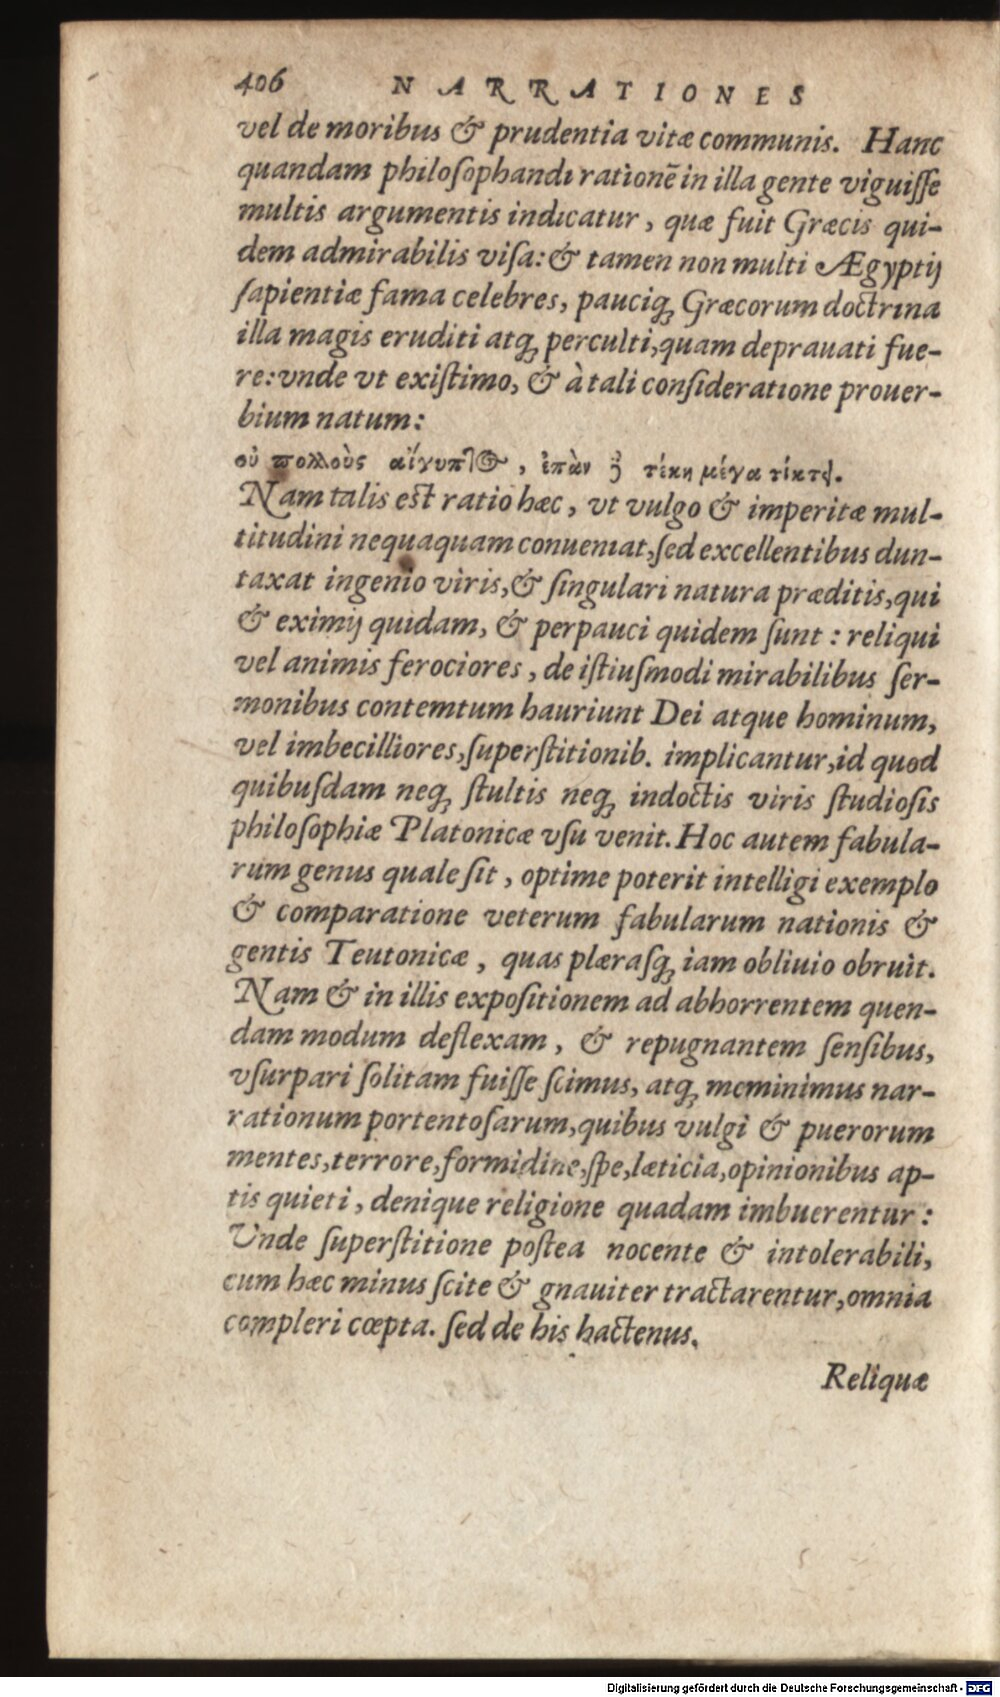 406 NARRATIONES
vel de moribus & prudentia vitæ communis. Hanc
quandam philoſophandi rationē in illa gente viguiſſe
multis argumentis indicatur, quæ fuit Græcis qui-
dem admirabilis viſa: & tamen non multi Ægyptij
ſapientiæ fama celebres, pauciq́ꝫ Græcorum doctrina
illa magis eruditi atqꝫ perculti, quam deprauati fue-
re: vnde vt exiſtimo, & à tali conſideratione prouer-
bium natum:
οὐ πολλοὺς αἴγυπτος, ἐπὰν ἢ τέκη μέγα τίκτει.
Nam talis est ratio hæc, vt vulgo & imperitæ mul-
titudini nequaquam conueniat, ſed excellentibus dun-
taxat ingenio viris, & ſingulari natura præditis, qui
& eximij quidam, & perpauci quidem ſunt: reliqui
vel animis ferociores, de iſtiuſmodi mirabilibus ſer-
monibus contemtum hauriunt Dei atque hominum,
vel imbecilliores, ſuperſtitionib. implicantur, id quod
quibuſdam neqꝫ ſtultis neqꝫ indoctis viris ſtudioſis
philoſophiæ Platonicæ vſu venit. Hoc autem fabula-
rum genus quale ſit, optime poterit intelligi exemplo
& comparatione veterum fabularum nationis &
gentis Teutonicæ, quas plæraſqꝫ iam obliuio obruit.
Nam & in illis expoſitionem ad abhorrentem quen-
dam modum deflexam, & repugnantem ſenſibus,
vſurpari ſolitam fuiſſe ſcimus, atqꝫ meminimus nar-
rationum portentoſarum, quibus vulgi & puerorum
mentes, terrore, formidine, ſpe, læticia, opinionibus ap-
tis quieti, denique religione quadam imbuerentur:
Unde ſuperſtitione poſtea nocente & intolerabili,
cum hæc minus ſcite & gnauiter tractarentur, omnia
compleri cœpta. ſed de his hactenus.
Reliquæ
Digitalisierung gefördert durch die Deutsche Forschungsgemeinschaft - DFG